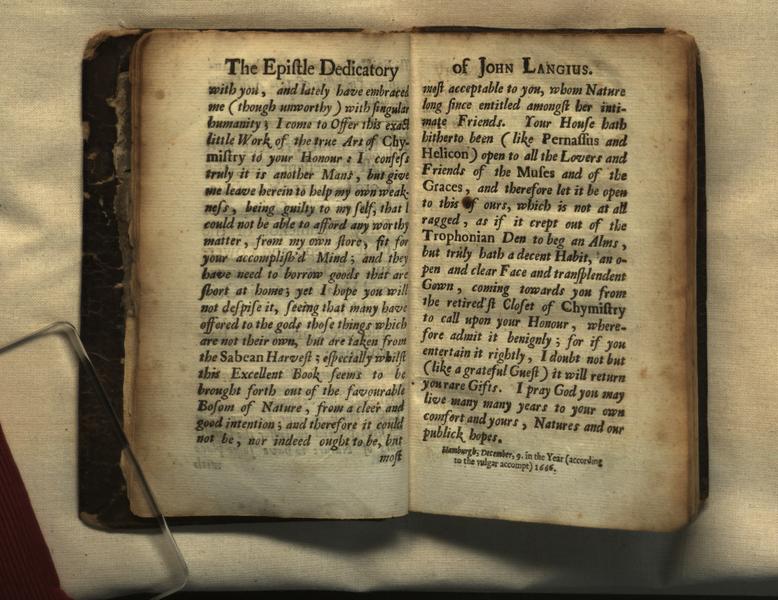 The Epiſtle Dedicatory
with you, and lately have embraced
me (though unworthy) with ſingular
humanity; I come to Offer this exact
little Work of the true Art of Chy-
miſtry to your Honour: I confeſs
truly it is another Mans, but give
me leave herein to help my own weak-
neſs, being guilty to my ſelf, that I
could not be able to afford any worthy
matter, from my own ſtore, fit for
your accompliſh'd Mind; and they
have need to borrow goods that are
ſhort at home; yet I hope you will
not deſpiſe it, ſeeing that many have
offered to the gods thoſe things which
are not their own, but are taken from
the Sabean Harveſt; eſpecially whilſt
this Excellent Book ſeems to be
brought forth out of the favourable
Boſom of Nature, from a cleer and
good intention; and therefore it could
not be, nor indeed ought to be, but
moſt
of JOHN LANGIUS.
moſt acceptable to you, whom Nature
long ſince entitled amongſt her inti-
mate Friends. Your Houſe hath
hitherto been (like Pernaſſus and
Helicon) open to all the Lovers and
Friends of the Muſes and of the
Graces, and therefore let it be open
to this of ours, which is not at all
ragged, as if it crept out of the
Trophonian Den to beg an Alms,
but truly hath a decent Habit, an o-
pen and clear Face and tranſplendent
Gown, coming towards you from
the retired'ſt Cloſet of Chymiſtry
to call upon your Honour, where-
fore admit it benignly; for if you
entertain it rightly, I doubt not but
(like a grateful Gueſt) it will return
you rare Gifts. I pray God you may
live many many years to your own
comfort and yours, Natures and our
publick hopes.
Hamburgh, December, 9. in the Year (according
to the vulgar accompt) 1666.